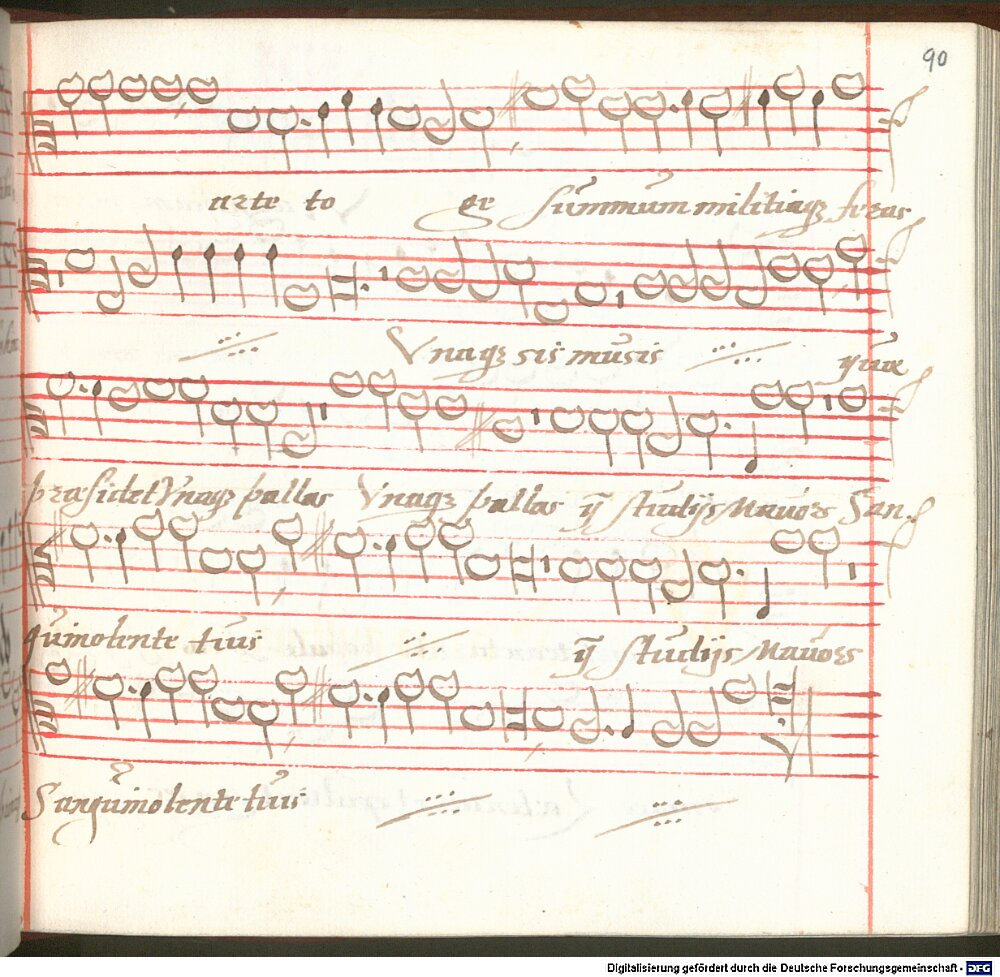 90
arte to ge summum militiaq; feras
Vnaq; sis musis quæ
præsidet Vnaq; pallas Vnaq; pallas ij studijs Mauors San
quinolente tuis ij studijs Mauors
Sanquinolente tuis
Digitalisierung gefördert durch die Deutsche Forschungsgemeinschaft - DFG